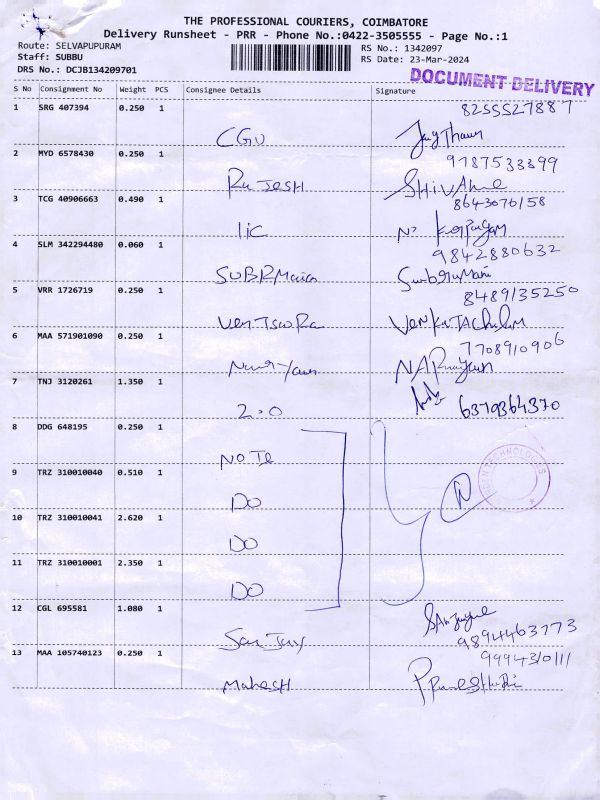 THE PROFESSIONAL COURIERS, COIMBATORE
Delivery Runsheet - PRR - Phone No.:0422-3505555 - Page No.:1
Route: SELVAPUPURAM RS No.: 1342097
Staff: SUBBU RS Date: 23-Mar-2024
DRS No.: DCJB134209701
DOCUMENT DELIVERY
S No Consignment No Weight PCS Consignee Details Signature
1 SRG 407394 0.250 1
8255527887
CGU
2 MYD 6578430 0.250 1
9787533399
RAJESH
3 TCG 40906663 0.490 1
8643076158
LIC
4 SLM 342294480 0.060 1
9842880632
5 VRR 1726719 0.250 1
8489135250
6 MAA 571901090 0.250 1
7708910906
7 TNJ 3120261 1.350 1
6379364370
2.0
8 DDG 648195 0.250 1
9 TRZ 310010040 0.510 1
DO
10 TRZ 310010041 2.620 1
DO
11 TRZ 310010001 2.350 1
DO
12 CGL 695581 1.080 1
9894463773
13 MAA 105740123 0.250 1
9994310111
Mahesh